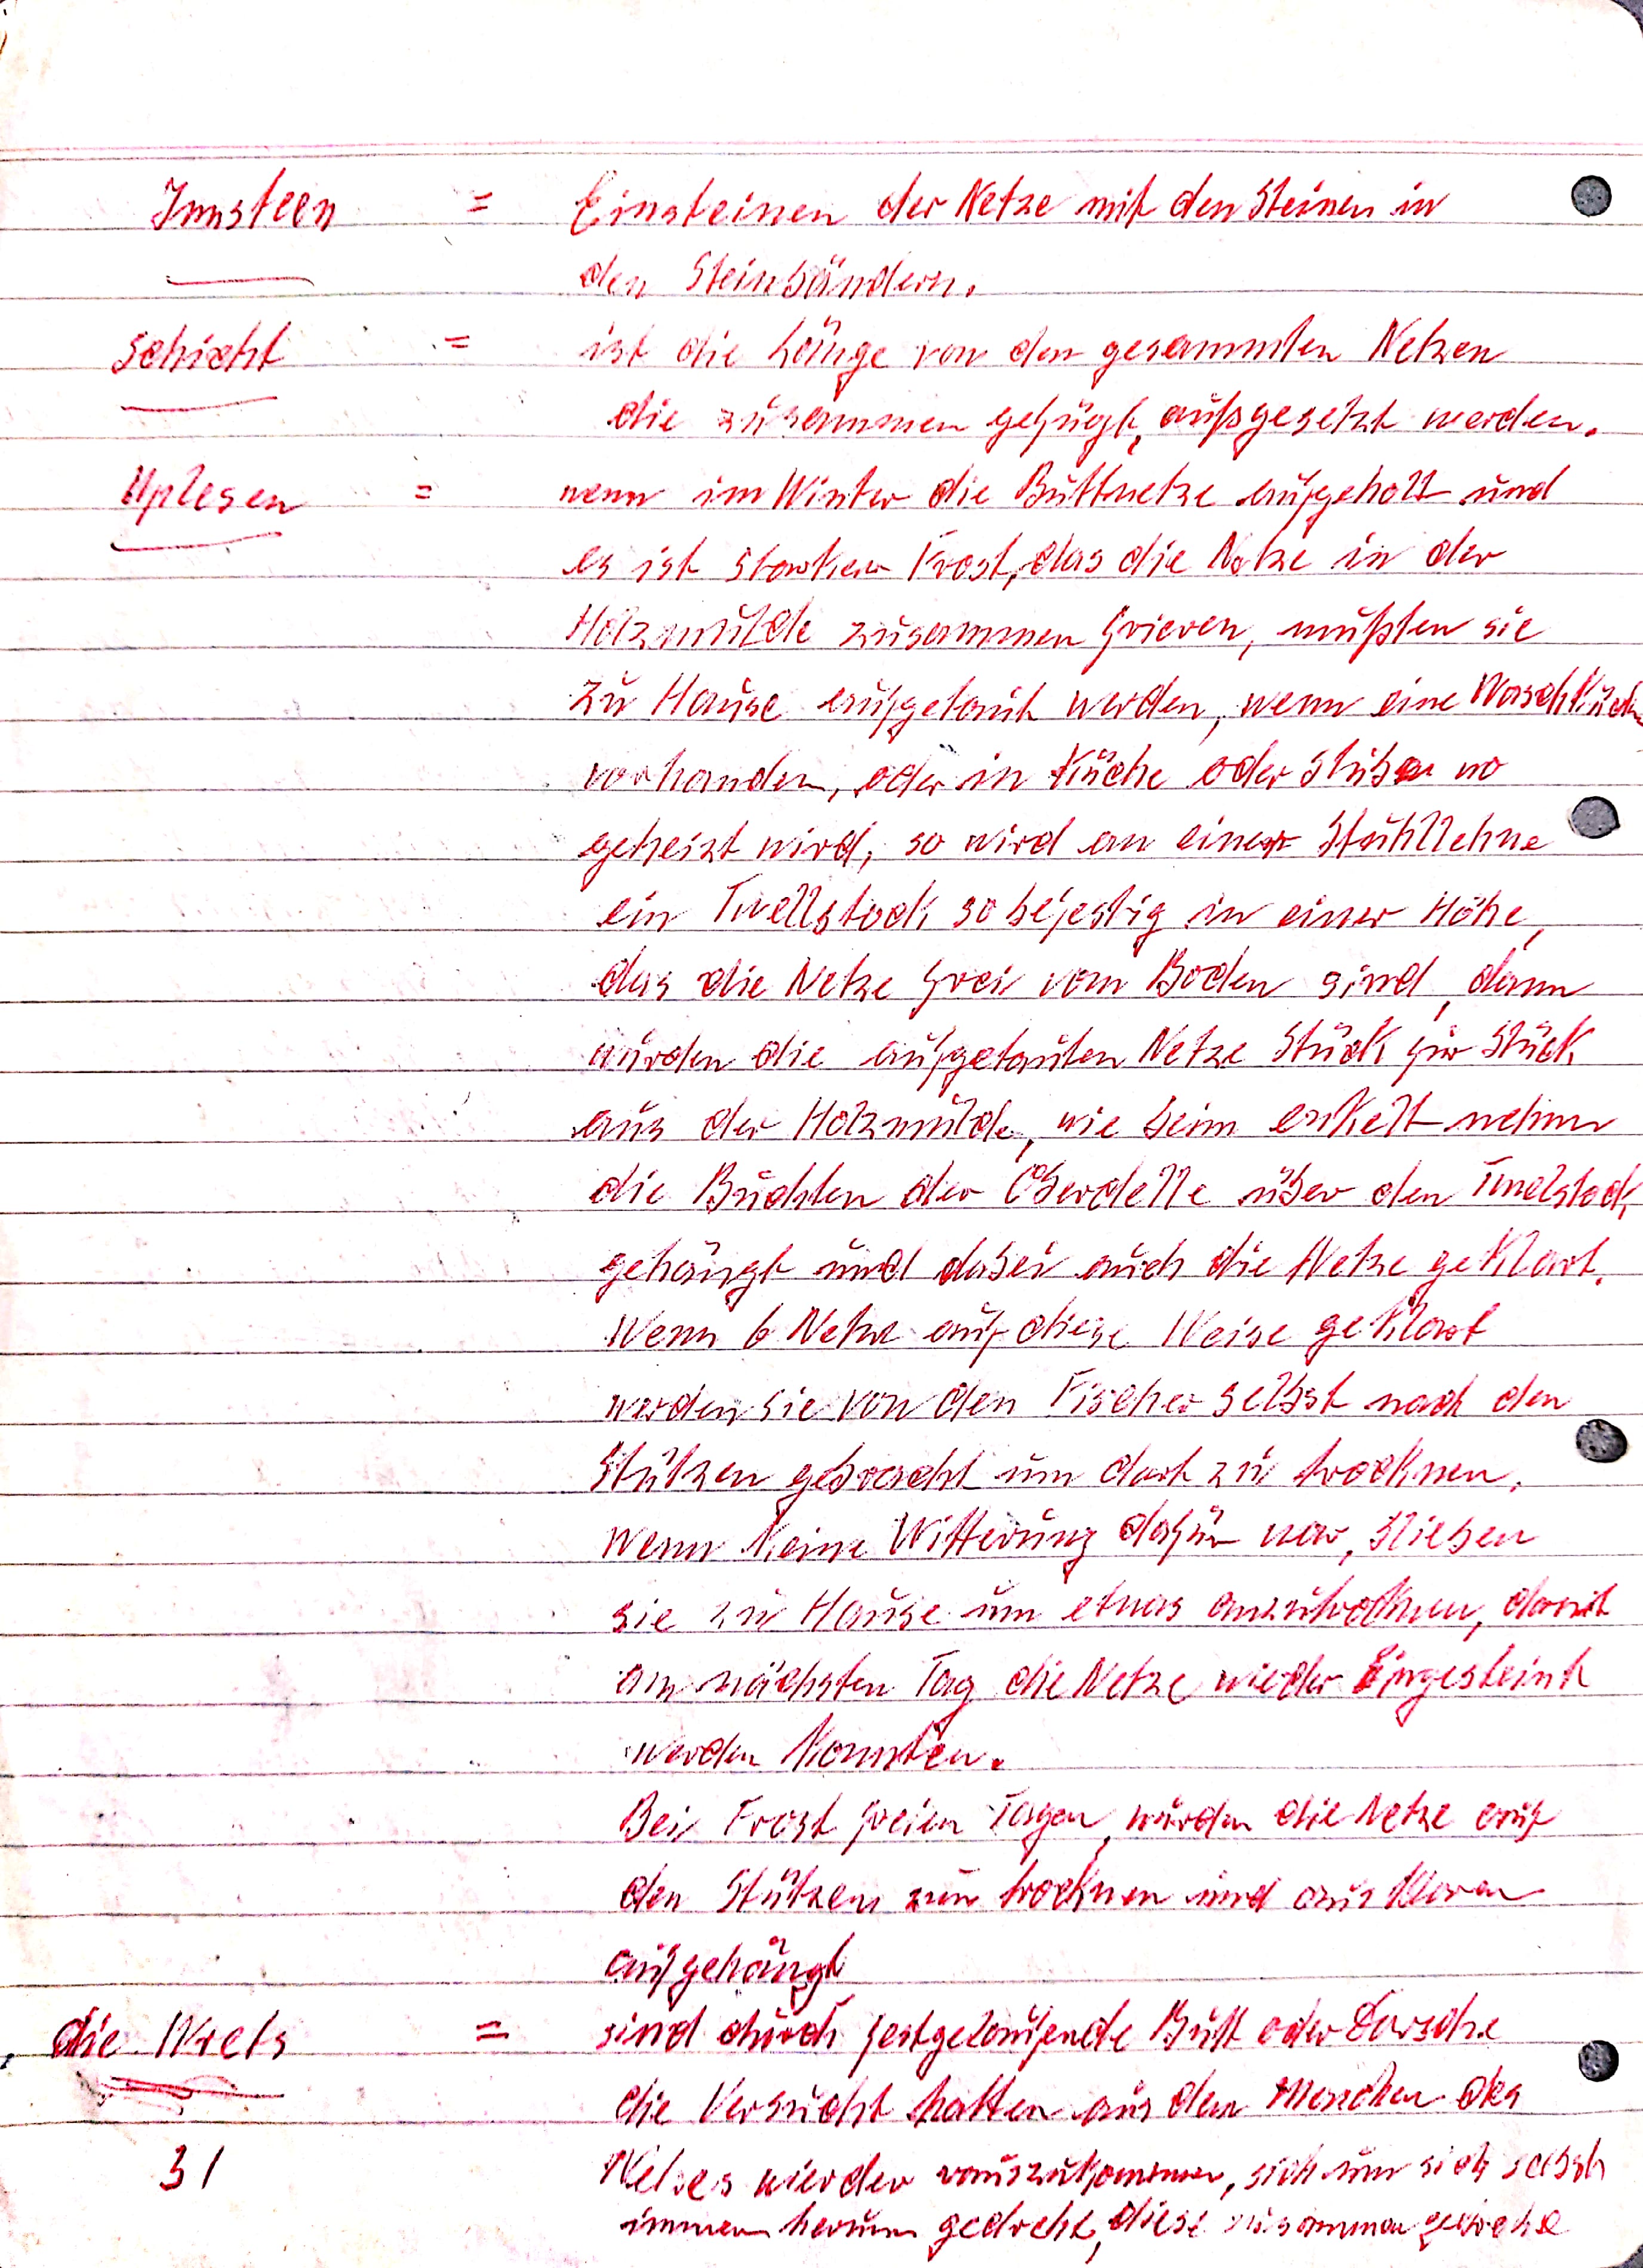 Innsteen = Einsteinen der Netze mit den Steinen in
den Steinbändern.
Schicht = ist die Länge von den gesammten Netzen
die zusammen gefügt, aufsgesetzt werden.
Uplesen = wenn im Winter die Buttnetze aufgeholt und
es ist starker Frost, das die Netze in der
Holzmulde zusammen frieren, mußten sie
zu Hause aufgetaut werden, wenn eine Waschküche
vorhanden, oder in Küche oder Stube wo
geheizt wird, so wird an einer Stuhllehne
ein Twellstock so befestig in einer Höhe,
das die Netze frei vom Boden sind, dann
wurden die aufgetauten Netze Stück für Stück
aus der Holzmulde, wie beim
die Buchten der Oberdelle über den Twelstock
gehängt und dabei auch die Netze geklart.
Wenn 6 Netze auf diese Weise geklart
werden sie von den Fischer selbst nach den
Stützen gebracht um dort zu trocknen.
Wenn keine Witterung dafür war, blieben
sie zu Hause um etwas anzutrocknen, damit
am nächsten Tag die Netze wieder Eingesteint
werden konnten.
Bei Frost freien Tagen, wurden die Netze auf
den Stützen zum trocknen und aus klaren
aufgehängt
die = sind durch festgelaufende Butt oder Dorsche
die Versucht hatten aus den Maschen des
Netzes wieder rauszukommen, sich um sich selbst
immer herum gedreht, diese zusammen gedrehte
31